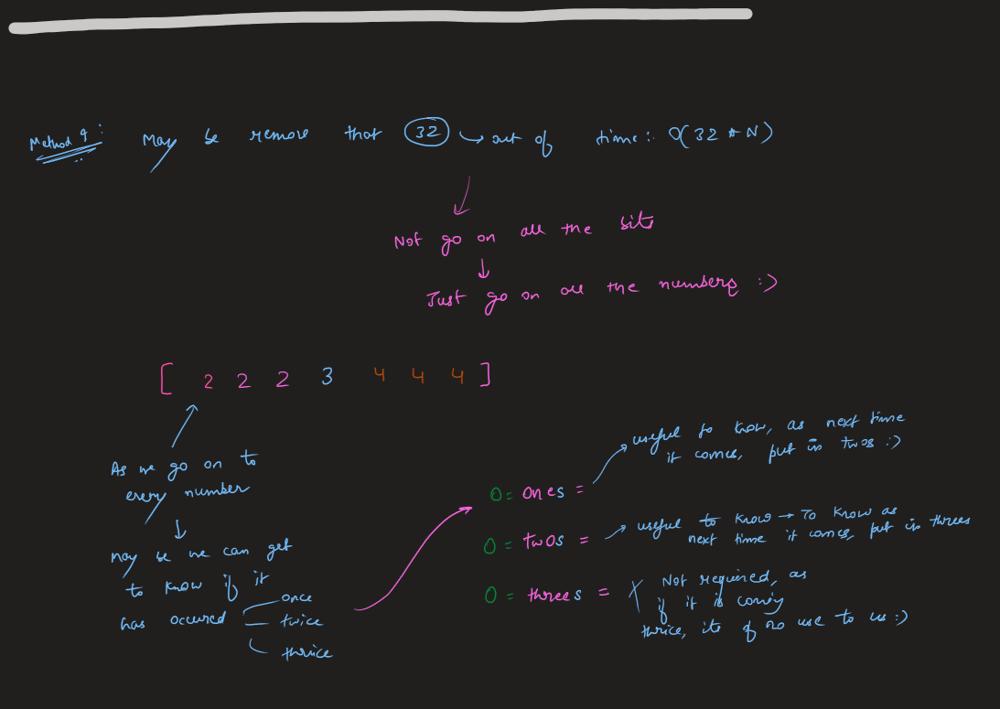 Method 4: May be remove that 32 → out of time: O(32 * N)
Not go on all the bits
Just go on all the numbers :)
[ 2 2 2 3 4 4 4 ]
As we go on to
every number
May be we can get
to know if it
has occured
once
twice
thrice
0 = ones =
useful to know, as next time
it comes, put in twos :)
0 = twos =
useful to know → To know as
next time it comes, put in threes
0 = threes =
Not required, as
if it is coming
thrice, its of no use to us :)